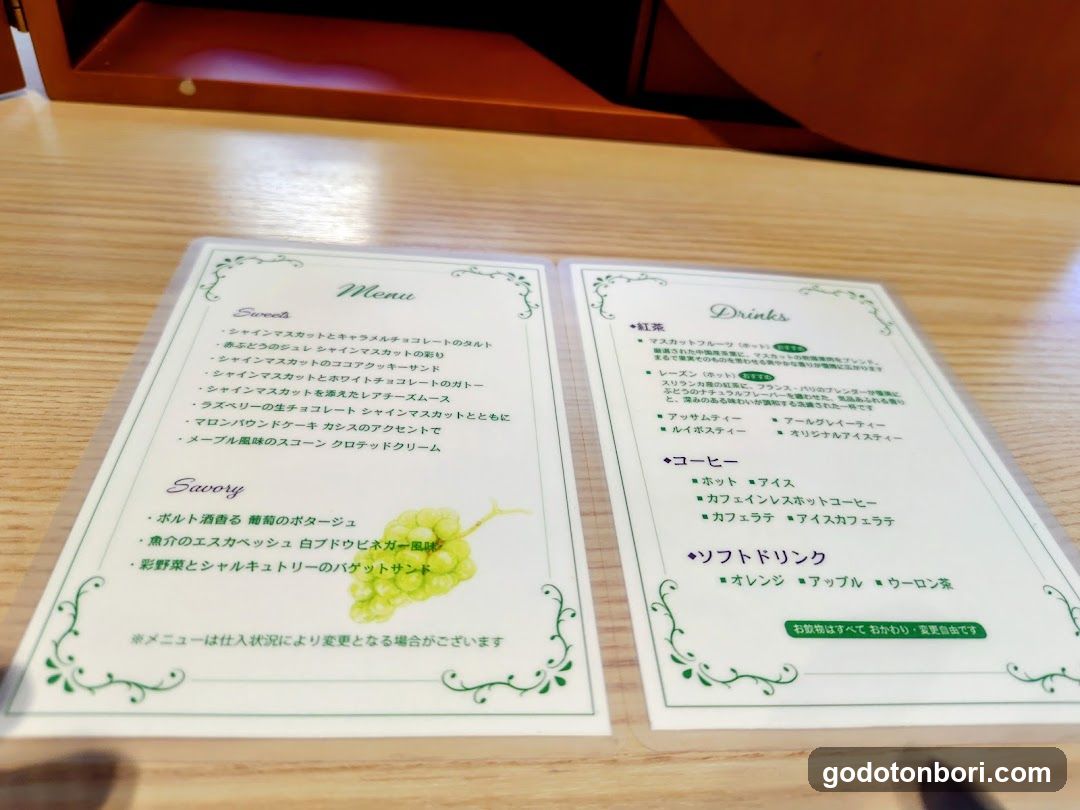 Menu
Sweets
・シャインマスカットとキャラメルチョコレートのタルト
・赤ぶどうのジュレ シャインマスカットの彩り
・シャインマスカットのココアクッキーサンド
・シャインマスカットとホワイトチョコレートのガトー
・シャインマスカットを添えたレアチーズムース
・ラズベリーの生チョコレート シャインマスカットとともに
・マロンパウンドケーキ カシスのアクセントで
・メープル風味のスコーン クロテッドクリーム
Savory
・ポルト酒香る 葡萄のポタージュ
・魚介のエスカベッシュ 白ブドウビネガー風味
・彩野菜とシャルキュトリーのバゲットサンド
※メニューは仕入状況により変更となる場合がございます
Drinks
◆紅茶
■ マスカットフルーツ（ホット） おすすめ
厳選された中国産茶葉に、マスカットの乾燥果肉をブレンド。
まるで果実そのものを思わせる爽やかな香りが優雅に広がります
■ レーズン（ホット） おすすめ
スリランカ産の紅茶に、フランス・パリのブレンダーが優雅に
ぶどうのナチュラルフレーバーを纏わせた、気品あふれる香り
と、深みのある味わいが調和する洗練された一杯です
■ アッサムティー ■ アールグレイティー
■ ルイボスティー ■ オリジナルアイスティー
◆コーヒー
■ホット ■アイス
■カフェインレスホットコーヒー
■カフェラテ ■アイスカフェラテ
◆ソフトドリンク
■オレンジ ■アップル ■ウーロン茶
お飲物はすべて おかわり・変更自由です
godotonbori.com